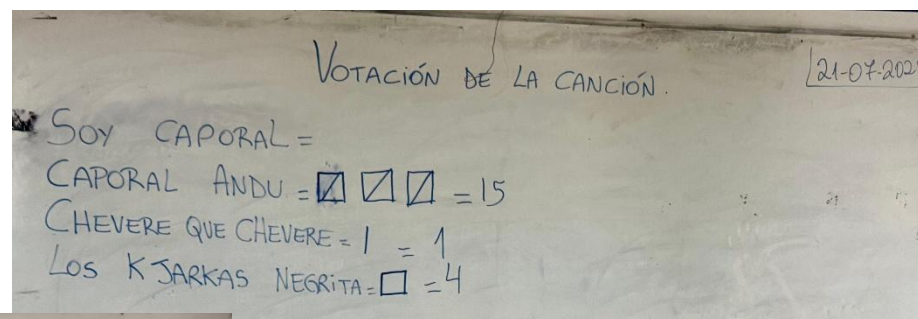 VOTACIÓN DE LA CANCIÓN.
21-07-202
SOY CAPORAL =
CAPORAL ANDU = = 15
CHEVERE QUE CHEVERE = 1 = 1
LOS KJARKAS NEGRITA = = 4